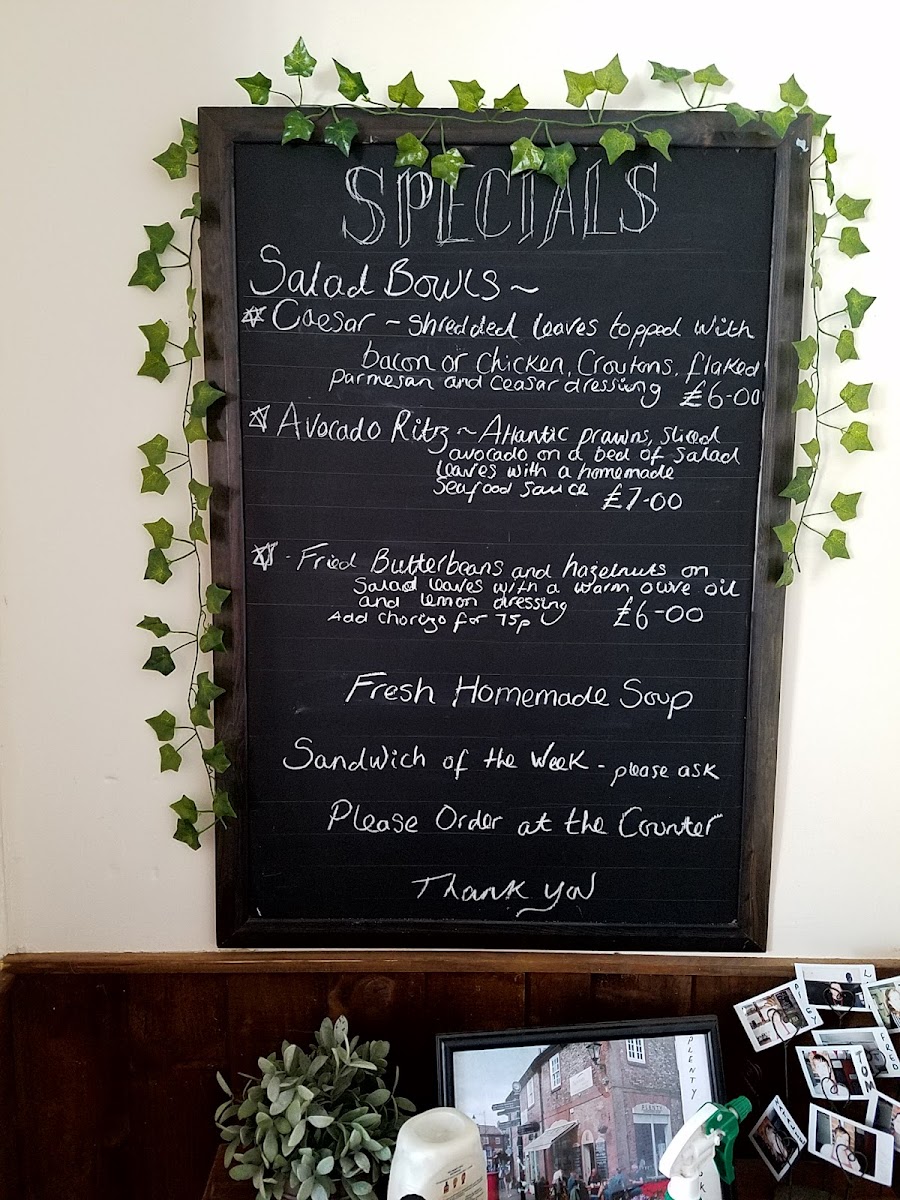 SPECIALS
Salad Bowls ~
Caesar ~ shredded leaves topped with
bacon or chicken, Croutons, flaked
parmesan and ceasar dressing £6-00
Avocado Ritz ~ Atlantic prawns, sliced
avocado on a bed of salad
leaves with a homemade
seafood sauce £7-00
- Fried Butterbeans and hazelnuts on
salad leaves with a warm olive oil
and lemon dressing £6-00
Add chorizo for 75p
Fresh Homemade Soup
Sandwich of the Week - please ask
Please Order at the Counter
Thank you
PLENTY
FRED
TOM